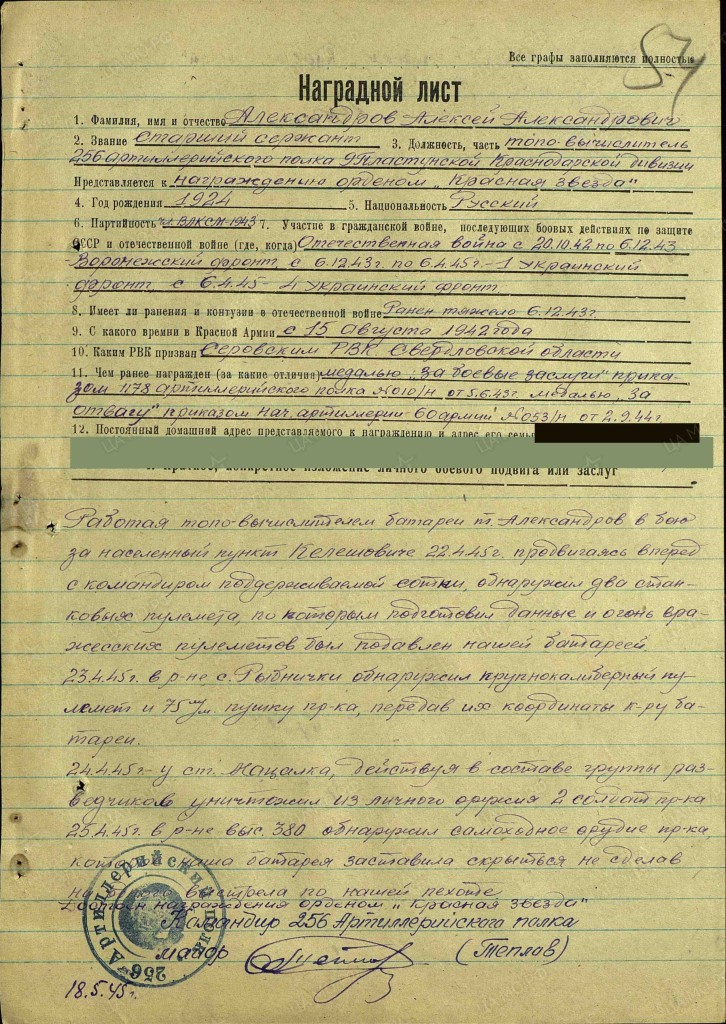 Все графы заполняются полностью
54
Наградной лист
1. Фамилия, имя и отчество Александров Алексей Александрович
2. Звание Старший сержант 3. Должность, часть топо-вычислитель
256 артиллерийского полка 9 Пластунской Краснодарской дивизии
Представляется к награждению орденом „Красная звезда"
4. Год рождения 1924 5. Национальность Русский
6. Партийность чл. ВЛКСМ-1943 7. Участие в гражданской войне, последующих боевых действиях по защите
СССР и отечественной войне (где, когда) Отечественная война с 20.10.42 по 6.12.43
Воронежский фронт, с 6.12.43г. по 6.4.45г.-1 Украинский
фронт, с 6.4.45-4 Украинский фронт
8. Имеет ли ранения и контузии в отечественной войне Ранен тяжело 6.12.43г.
9. С какого времени в Красной Армии с 15 августа 1942 года
10. Каким РВК призван Серовским РВК Свердловской области
11. Чем ранее награжден (за какие отличия) медалью „за боевые заслуги" прика-
зом 1178 артиллерийского полка №010/н от 5.6.43г. медалью „За
отвагу" приказом нач. артиллерии 60 армии №053/н от 2.9.44г.
12. Постоянный домашний адрес представляемого к награждению и адрес его семьи
конкретное изложение личного боевого подвига или заслуг
Работая топо-вычислителем батареи т. Александров в бою
за населенный пункт Келешовиче 22.4.45г. продвигаясь вперед
с командиром поддерживаемой сотни, обнаружил два стан-
ковых пулемета, по которым подготовил данные и огонь вра-
жесских пулеметов был подавлен нашей батареей.
23.4.45г. в р-не с. Рыбнички обнаружил крупнокалиберный пу-
лемет и 75 м/м. пушку пр-ка, передав их координаты к-ру ба-
тареи.
24.4.45г. у ст. Мацалка, действуя в составе группы раз-
ведчиков уничтожил из личного оружия 2 солдат пр-ка
25.4.45г. в р-не выс. 380 обнаружил самоходное орудие пр-ка,
наша батарея заставила скрыться не сделав
выстрела по нашей пехоте.
Достоин награждения орденом „Красная звезда"
Командир 256 Артиллерийского полка
майор (Теплов)
256 Артиллерийский полк
18.5.45г.